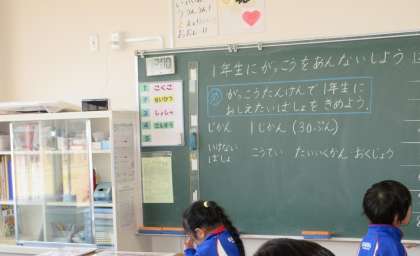 1年生にがっこうをあんないしよう
め がっこうたんけんで1年生に
おしえたいばしょをきめよう。
じかん 1じかん(30ぷん)
いけない
ばしょ こうてい たいいくかん おくじょう
1 こくご
2 せいかつ
3 しょしゃ
4
5